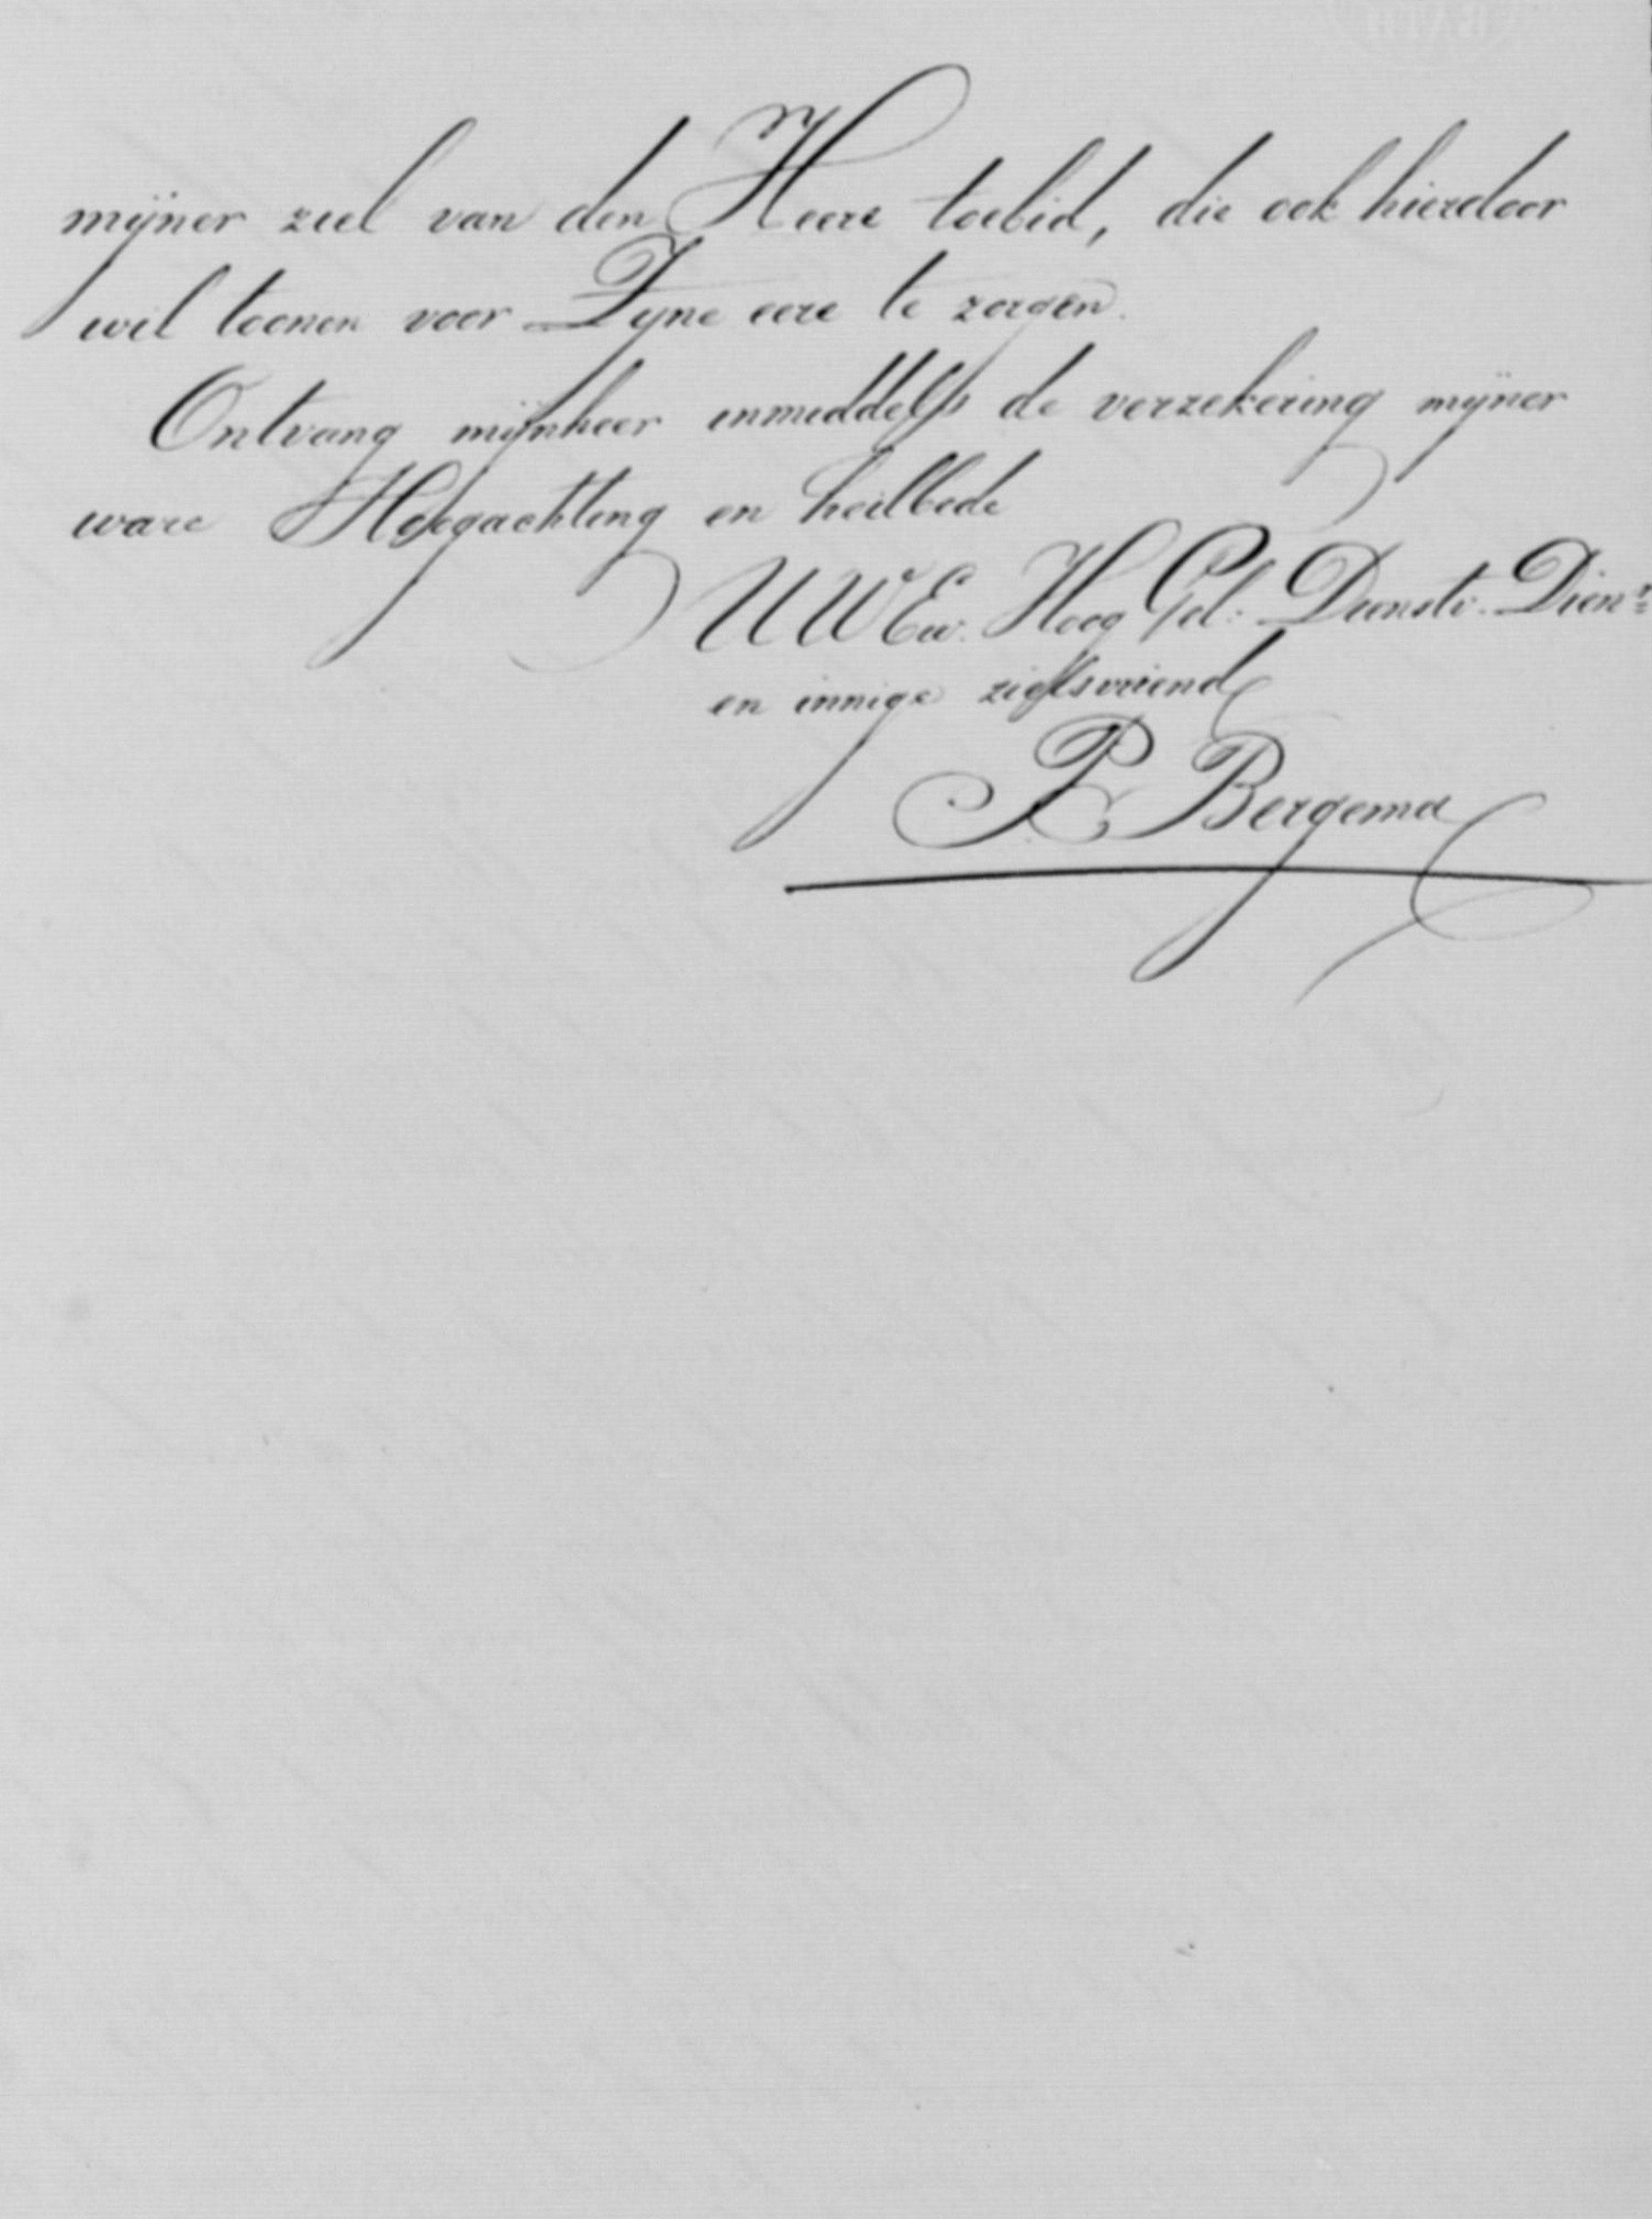 mijner ziel van den Heere toebid, die ook hierdoor
wil toonen voor Zyne eere te zorgen.
Ontvang mijnheer inmiddels de verzekering mijner
ware Hoogachting en heilbede
UWEw. Hoog Gel: Dienstv. Dienr
en innige zielsvriend
P Bergema